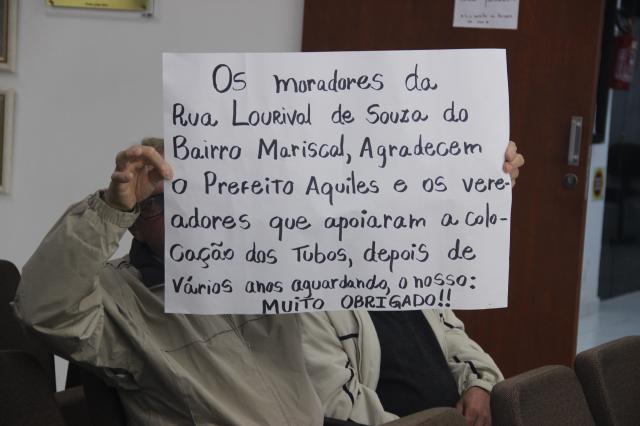 Os moradores da
Rua Lourival de Souza do
Bairro Mariscal, Agradecem
o Prefeito Aquiles e os vere-
adores que apoiaram a colo-
cação dos Tubos, depois de
vários anos aguardando, o nosso:
MUITO OBRIGADO!!